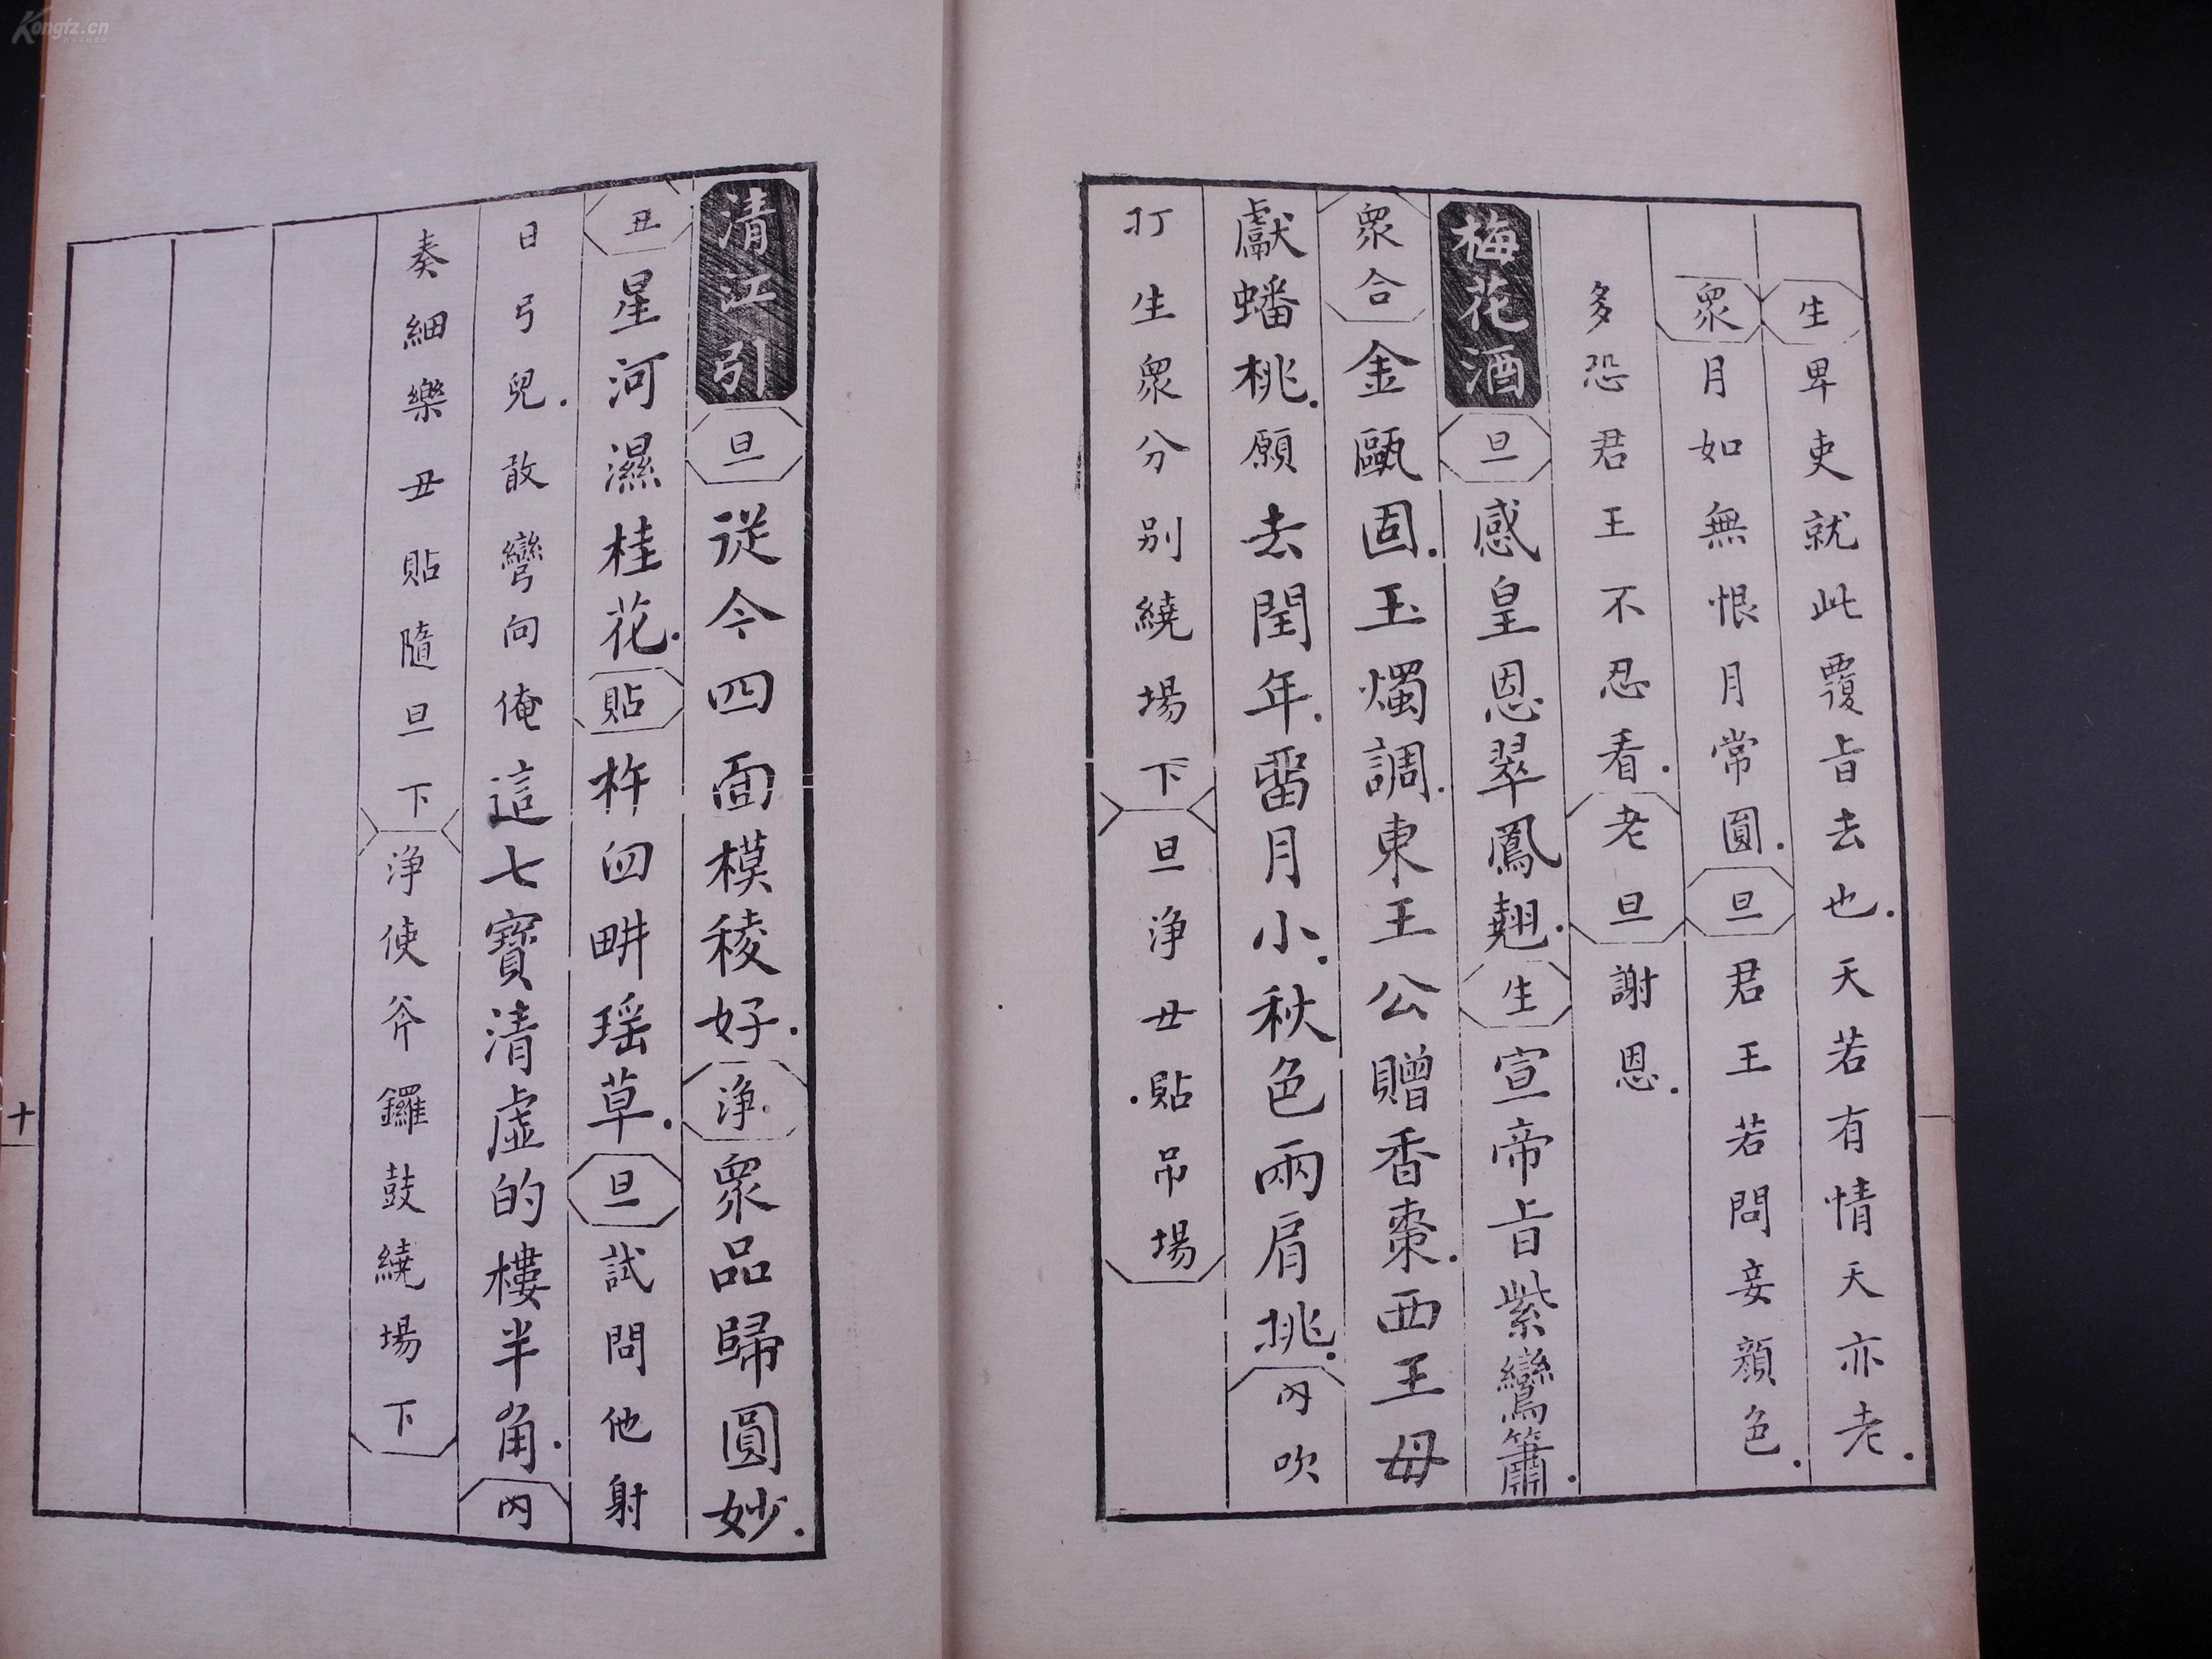 生卑吏就此覆旨去也天若有情天亦老
衆月如無恨月常圓旦君王若問妾顔色
多恐君王不忍看老旦謝恩
梅花酒旦感皇恩翠鳳翹生宣帝旨紫鸞簫
衆合金甌固玉燭調東王公贈香棗西王母
獻蟠桃願去閏年畱月小秋色兩肩挑内吹
打生衆分别繞場下旦浄丑貼吊場
清江引旦從今四面模稜好浄衆品歸圓妙
丑星河濕桂花貼杵臼畊瑶草旦試問他射
日弓兒敢彎向俺這七寶清虛的樓半角内
奏細樂丑貼隨旦下浄使斧鑼鼓繞場下
十
Kongfz.cn